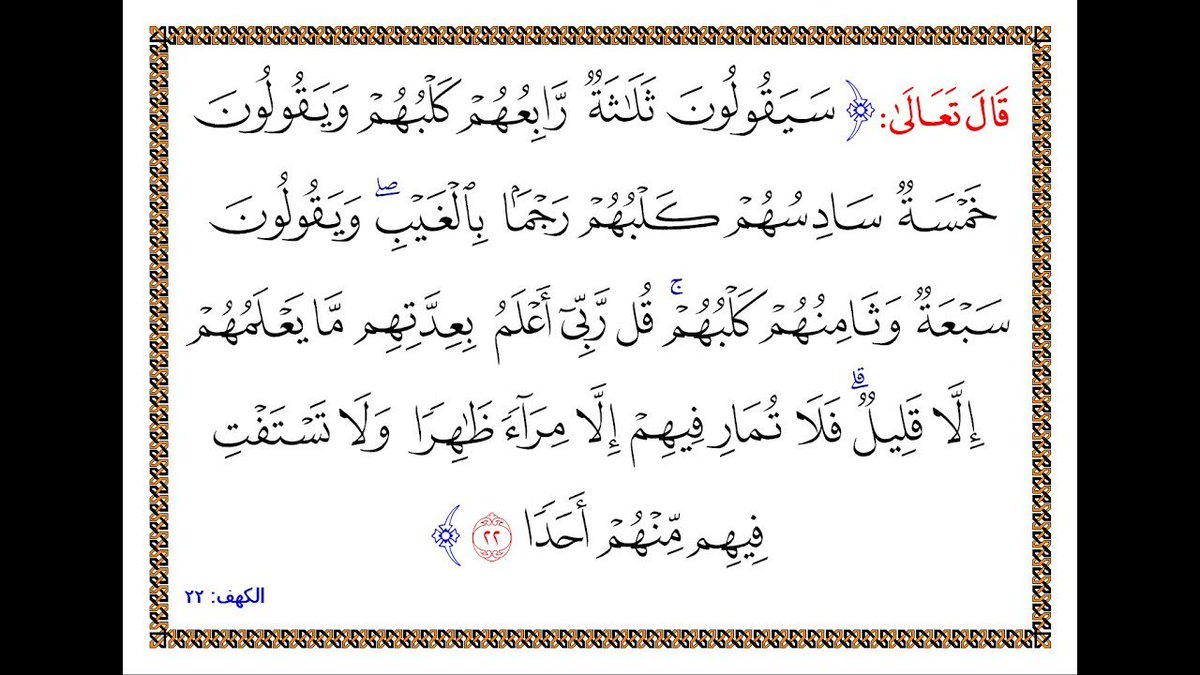 قَالَ تَعَالَىٰ: ﴿ سَيَقُولُونَ ثَلَٰثَةٌ رَّابِعُهُمۡ كَلۡبُهُمۡ وَيَقُولُونَ
خَمۡسَةٌ سَادِسُهُمۡ كَلۡبُهُمۡ رَجۡمَۢا بِٱلۡغَيۡبِۖ وَيَقُولُونَ
سَبۡعَةٌ وَثَامِنُهُمۡ كَلۡبُهُمۡۚ قُل رَّبِّيٓ أَعۡلَمُ بِعِدَّتِهِم مَّا يَعۡلَمُهُمۡ
إِلَّا قَلِيلٌۗ فَلَا تُمَارِ فِيهِمۡ إِلَّا مِرَآءٗ ظَٰهِرٗا وَلَا تَسۡتَفۡتِ
فِيهِم مِّنۡهُمۡ أَحَدٗا ٢٢ ﴾
الكهف: ٢٢